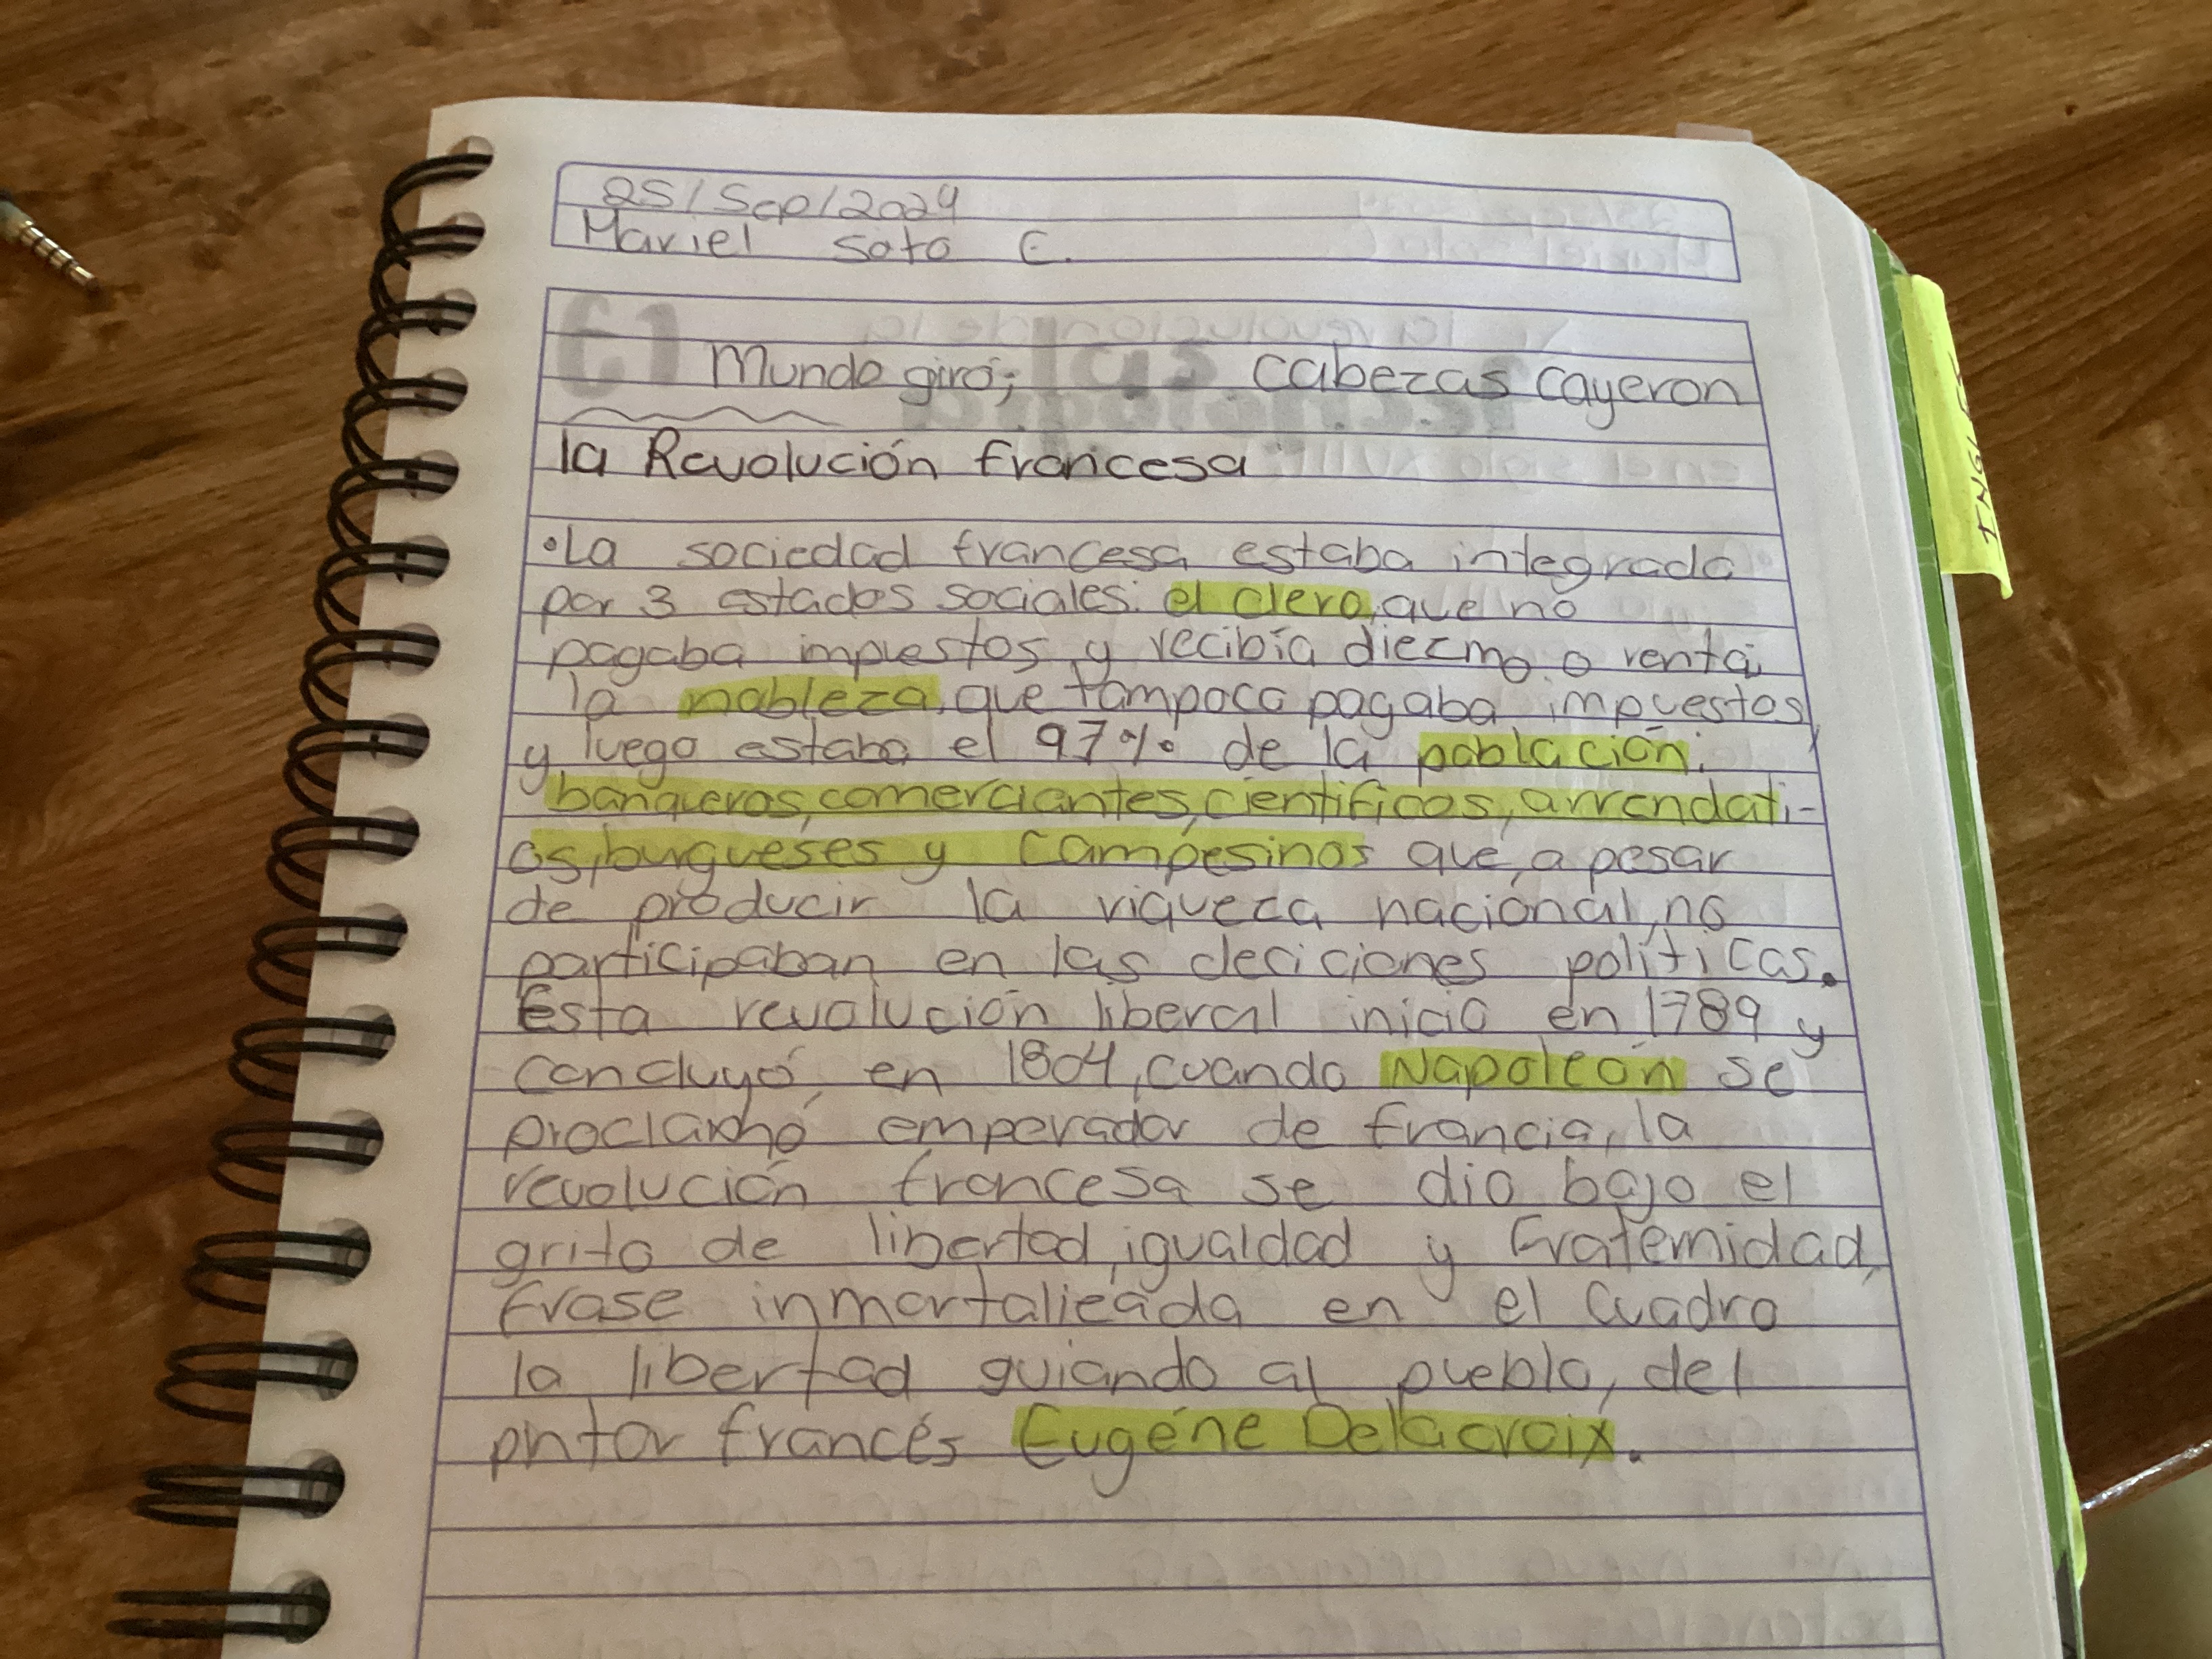 25/Sep/2024
Mariel Soto E.
Mundo giró; cabezas cayeron
la Revolución francesa
•La sociedad francesa estaba integrada
por 3 estados sociales: el clero, que no
pagaba impuestos y recibía diezmo o renta,
la nobleza, que tampoco pagaba impuestos,
y luego estaba el 97% de la población:
banqueros, comerciantes, científicos, arrendati-
os, burgueses y campesinos que, a pesar
de producir la riqueza nacional, no
participaban en las deciciones políticas.
Esta revolución liberal inicio en 1789 y
concluyó, en 1804, cuando Napoleón se
proclamó emperador de francia, la
revolución francesa se dio bajo el
grito de libertad, igualdad y Fraternidad,
frase inmortalizada en el cuadro
la libertad guiando al pueblo, del
pntor francés Eugéne Delacroix.
INGLÉS